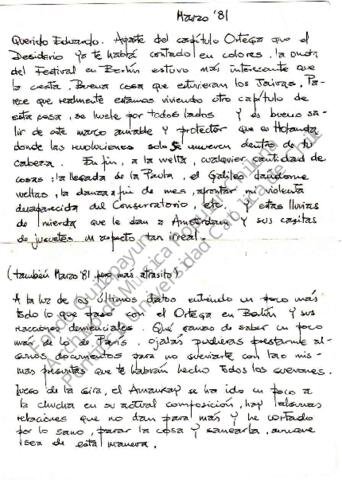 Marzo '81
Querido Eduardo. Aparte del capítulo Ortega que el
Desiderio ya te habrá contado en colores, la onda
del Festival en Berlín estuvo más interesante que
la cresta. Buena cosa que estuvieran los Jaivas. Pa-
rece que realmente estamos viviendo otro capítulo de
esta cosa, se huele por todos lados y es bueno sa-
lir de este marco amable y protector que es Holanda
donde las revoluciones solo se mueven dentro de tu
cabeza. En fin, a la vuelta, cualquier cantidad de
cosas: la llegada de la Paula, el Galileo dándome
vueltas, la danza a fin de mes, afrontar mi violenta
desaparecida del Conservatorio, etc. y estas lluvias
de mierda que le dan a Amsterdam y sus casitas
de juguetes un aspecto tan irreal.
(también Marzo '81 pero más atrasito)
A la luz de los últimos datos entiendo un poco más
todo lo que pasó con el Ortega en Berlín y sus
reacciones demenciales. Qué ganas de saber un poco
más de lo de París. Ojalá pudieras prestarme al-
gunos documentos para no huevearte con las mis-
mas preguntas que te habrán hecho todos los huevones.
Luego de la gira, el Amankay se ha ido un poco a
la chucha en su actual composición, hay algunas
relaciones que no dan para más y he cortado
por lo sano, parar la cosa y sanearla, aunque
sea de esta manera.